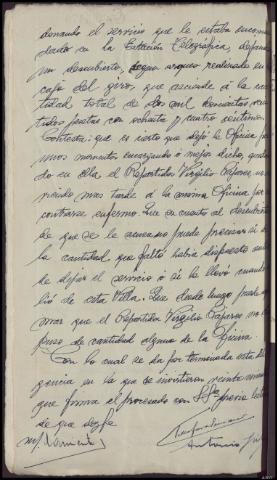 donando el servicio que le estaba encomen
dado en la Estación Telegráfica, dejando
un descubierto, según arqueo realizado en
caja del giro, que asciende á la can
tidad total de dos mil doscientas
pesetas con ochenta y cuatro centimos
Contesta: que es cierto que dejó la Oficina por
unos momentos encargando o mejor dicho quedan
do en ella el Repartidor Virgilio
mas tarde á la misma Oficina por en
contrarse enfermo. Que en cuanto al descubierto
de que se le acusa no puede precisar si de
la cantidad que faltó habia dispuesto antes
de dejar el servicio ó si la llevó cuando sa
lió de esta Villa. Que desde luego puede afir
mar que el Repartidor Virgilio no dis
puso de cantidad alguna de la Oficina.
Con lo cual se da por terminada esta dili
gencia en la que se invirtieron veinte minutos
que firma el procesado con S.Sª previa lectura
de que doy fe
Antonio